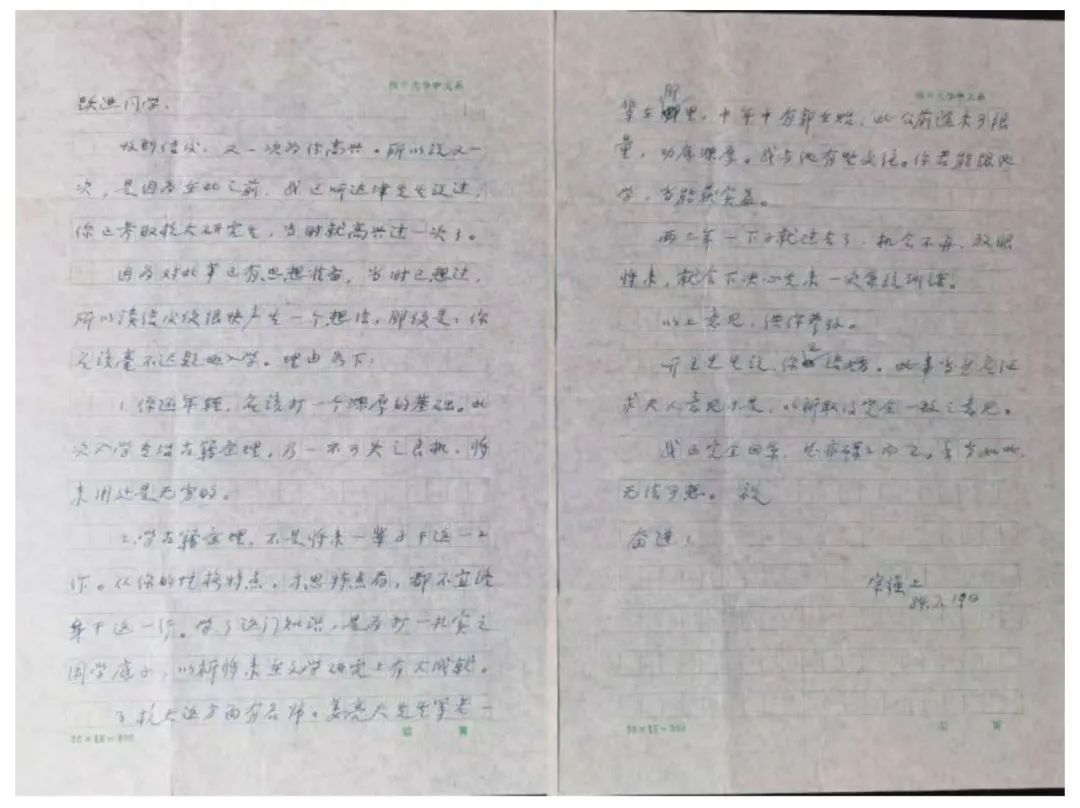 四川大学中文系
跃进同学：
收到信后，又一次为你高兴。所以说又一
次，是因为在此之前，我已听运津先生说过，
你已考取杭大研究生，当时就高兴过一次了。
因为对此事已有思想准备，当时已想过，
所以读信后很快产生一个想法，那便是：你
应该毫不迟疑地入学。理由如下：
1. 你还年轻，应该打一个深厚的基础。此
次入学专治古籍整理，乃一不可失之良机，将
来用处是无穷的。
2. 学古籍整理，不是将来一辈子干这一工
作。从你的性格特点，才思特点看，都不宜终
身干这一行。学了这门知识，是为打一扎实之
国学底子，以新将来在文学研究上有大成就。
3. 杭大这方面有名师。姜亮夫先生等老一
20×15=300
四川大学中文系
辈在那里，中年中有郭在贻，此公前途未可限
量，功底深厚。我与他有些交往。你若能跟他
学，当能获实益。
两三年一下子就过去了，机会不再，放眼
将来，就会下决心先来一次系统训练。
以上意见，供你参考。
先生说，你已结婚。此事当然应征
求夫人意见才是，以祈取得完全一致之意见。
我
无法可想。祝
奋进！
宗强上
19日
20×15=300